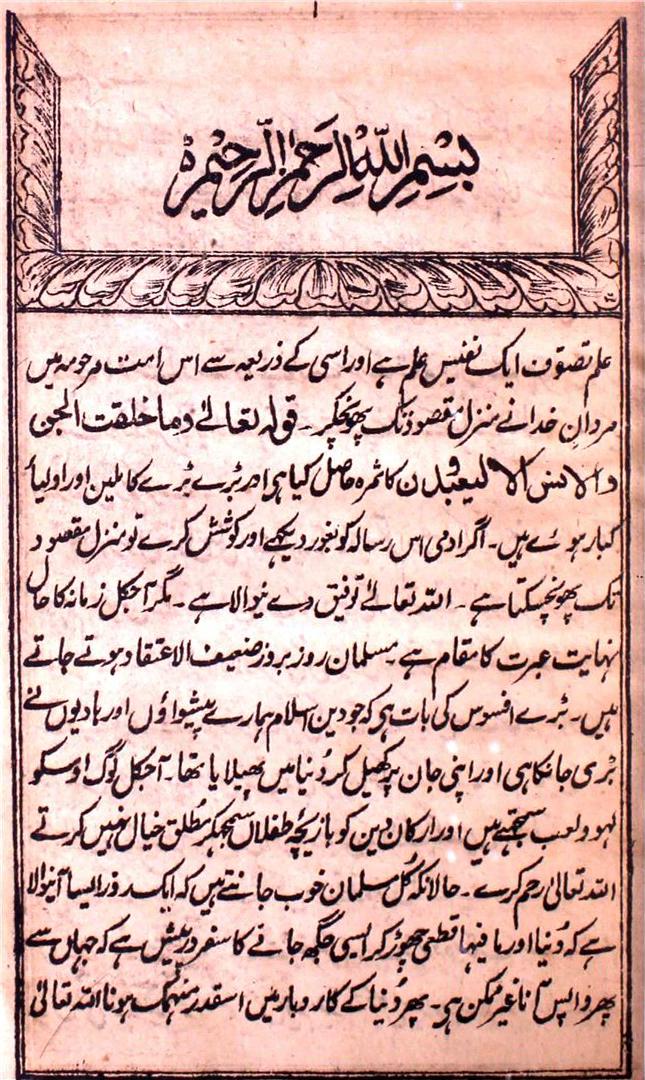 بِسْمِ اللّٰهِ الرَّحْمٰنِ الرَّحِيْمِ ہ
علم تصوّف ایک نفیس علم ہے اور اسی کے ذریعہ سے اس امت مرحومہ میں
مردانِ خدا نے منزل مقصود تک پھونچکر۔ قولہ تعالےٰ وما خلقت الجن
والانس الا لیعبدون کا ثمرہ حاصل کیا ہی اور بڑے بڑے کاملین اور اولیائے
کبار ہوئے ہیں۔ اگر ادمی اس رسالہ کو بغور دیکھے اور کوشش کرے تو منزل مقصود
تک پھونچسکتا ہے۔ اللہ تعالےٰ توفیق دے نیوالا ہے۔ مگر آجکل زمانہ کا حال
نہایت عبرت کا مقام ہے۔ مسلمان روز بروز ضعیف الاعتقاد ہوتے جاتے
ہیں۔ بڑے افسوس کی بات ہی کہ جو دین اسلام ہمارے پیشواؤں اور ہادیوں نے
بڑی جانکاہی اور اپنی جان پر کھیل کر دُنیا میں پھیلایا تھا۔ آجکل لوگ اوسکو
لہو و لعب سمجھتے ہیں اور ارکان دین کو بازیچۂ طفلاں سمجھکر مُطلق خیال نہیں کرتے
اللہ تعالیٰ رحم کرے۔ حالانکہ کُل مسلمان خوب جانتے ہیں کہ ایک روز ایسا آنیوالا
ہے کہ دُنیا اور ما فیہا قطعی چھوڑ کر ایسی جگھ جانے کا سفر درپیش ہے کہ جہاں سے
پھر واپس آنا غیر ممکن ہی۔ پھر دُنیا کے کاروبار میں اسقدر منہمک ہونا اللہ تعالیٰ